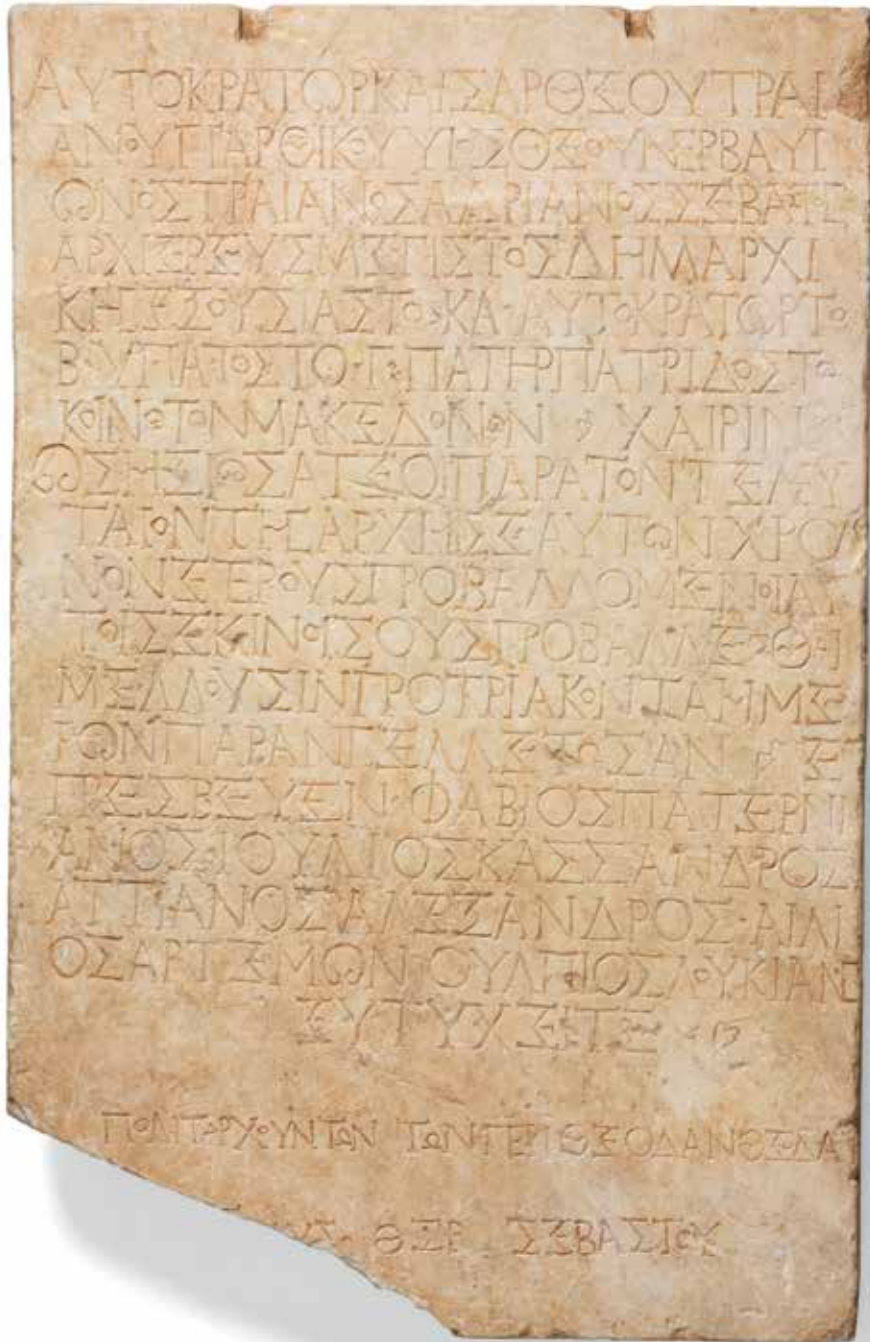 ΑΥΤΟΚΡΑΤΩΡΚΑΙΣΑΡΘΕΟΥΤΡΑΙ
ΑΝΟΥΠΑΡΘΙΚΟΥΥΙΟΣΘΕΟΥΝΕΡΒΑΥΙ
ΩΝΟΣΤΡΑΙΑΝΟΣΑΔΡΙΑΝΟΣΣΕΒΑΣΤΟΣ
ΑΡΧΙΕΡΕΥΣΜΕΓΙΣΤΟΣΔΗΜΑΡΧΙ
ΚΗΣΕΞΟΥΣΙΑΣΤΟ·ΚΑ·ΑΥΤΟΚΡΑΤΩΡΤΟ
Β·ΥΠΑΤΟΣΤΟ·Γ·ΠΑΤΗΡΠΑΤΡΙΔΟΣΤΩ
ΚΟΙΝΩΤΩΝΜΑΚΕΔΟΝΩΝ ΧΑΙΡΙΝ
ΤΑΙΟΝΤΗΣΑΡΧΗΣΕΑΥΤΩΝΧΡΟ
ΝΟΝΕΤΕΡΟΥΣΠΡΟΒΑΛΛΟΜΕΝΟΙΑΥ
ΤΟΙΣΕΚΙΝΟΙΣΟΥΣΠΡΟΒΑΛΛΕΣΘΑΙ
ΜΕΛΛΟΥΣΙΝΠΡΟΤΡΙΑΚΟΝΤΑΗΜΕ
ΡΩΝΠΑΡΑΝΓΕΛΛΕΤΩΣΑΝ ΕΠ
ΠΡΕΣΒΕΥΕΝ·ΦΑΒΙΟΣΠΑΤΕΡΝΙ
ΑΝΟΣΙΟΥΛΙΟΣΚΑΣΣΑΝΔΡΟΣ
ΑΤΤΙΑΝΟΣΑΛΕΞΑΝΔΡΟΣ·ΑΙΛΙ
ΟΣΑΡΤΕΜΩΝΟΥΛΠΙΟΣΛΟΥΚΙΑΝΟΣ
ΕΥΤΥΧΕΙΤΕ
ΠΟΛΙΤΑΡΧΟΥΝΤΩΝ ΤΩΝΠΕΡΙ
ΘΞΡ ΣΕΒΑΣΤΟΥ